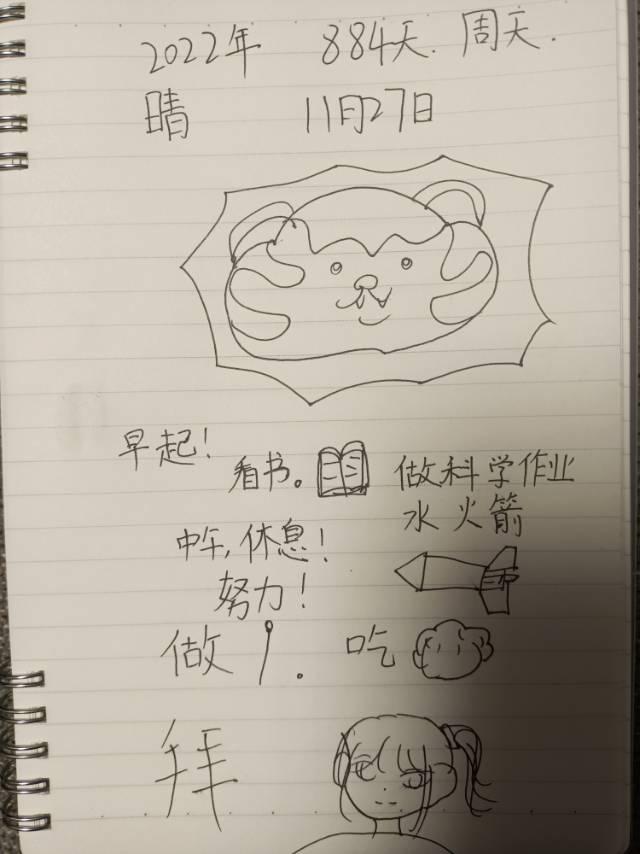 2022年 884天. 周天.
晴 11月27日
早起！
看书。 做科学作业
水火箭
中午，休息！
努力！
做 。 吃
拜